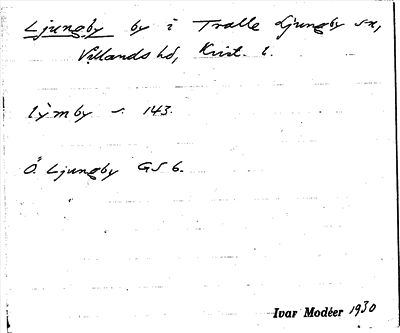 Ljungby by i Tralle Ljungby sn,
Villands hd, Krist. l.
lỳmby ~ 143.
Ö. Ljungby GS 6.
Ivar Modéer 1930